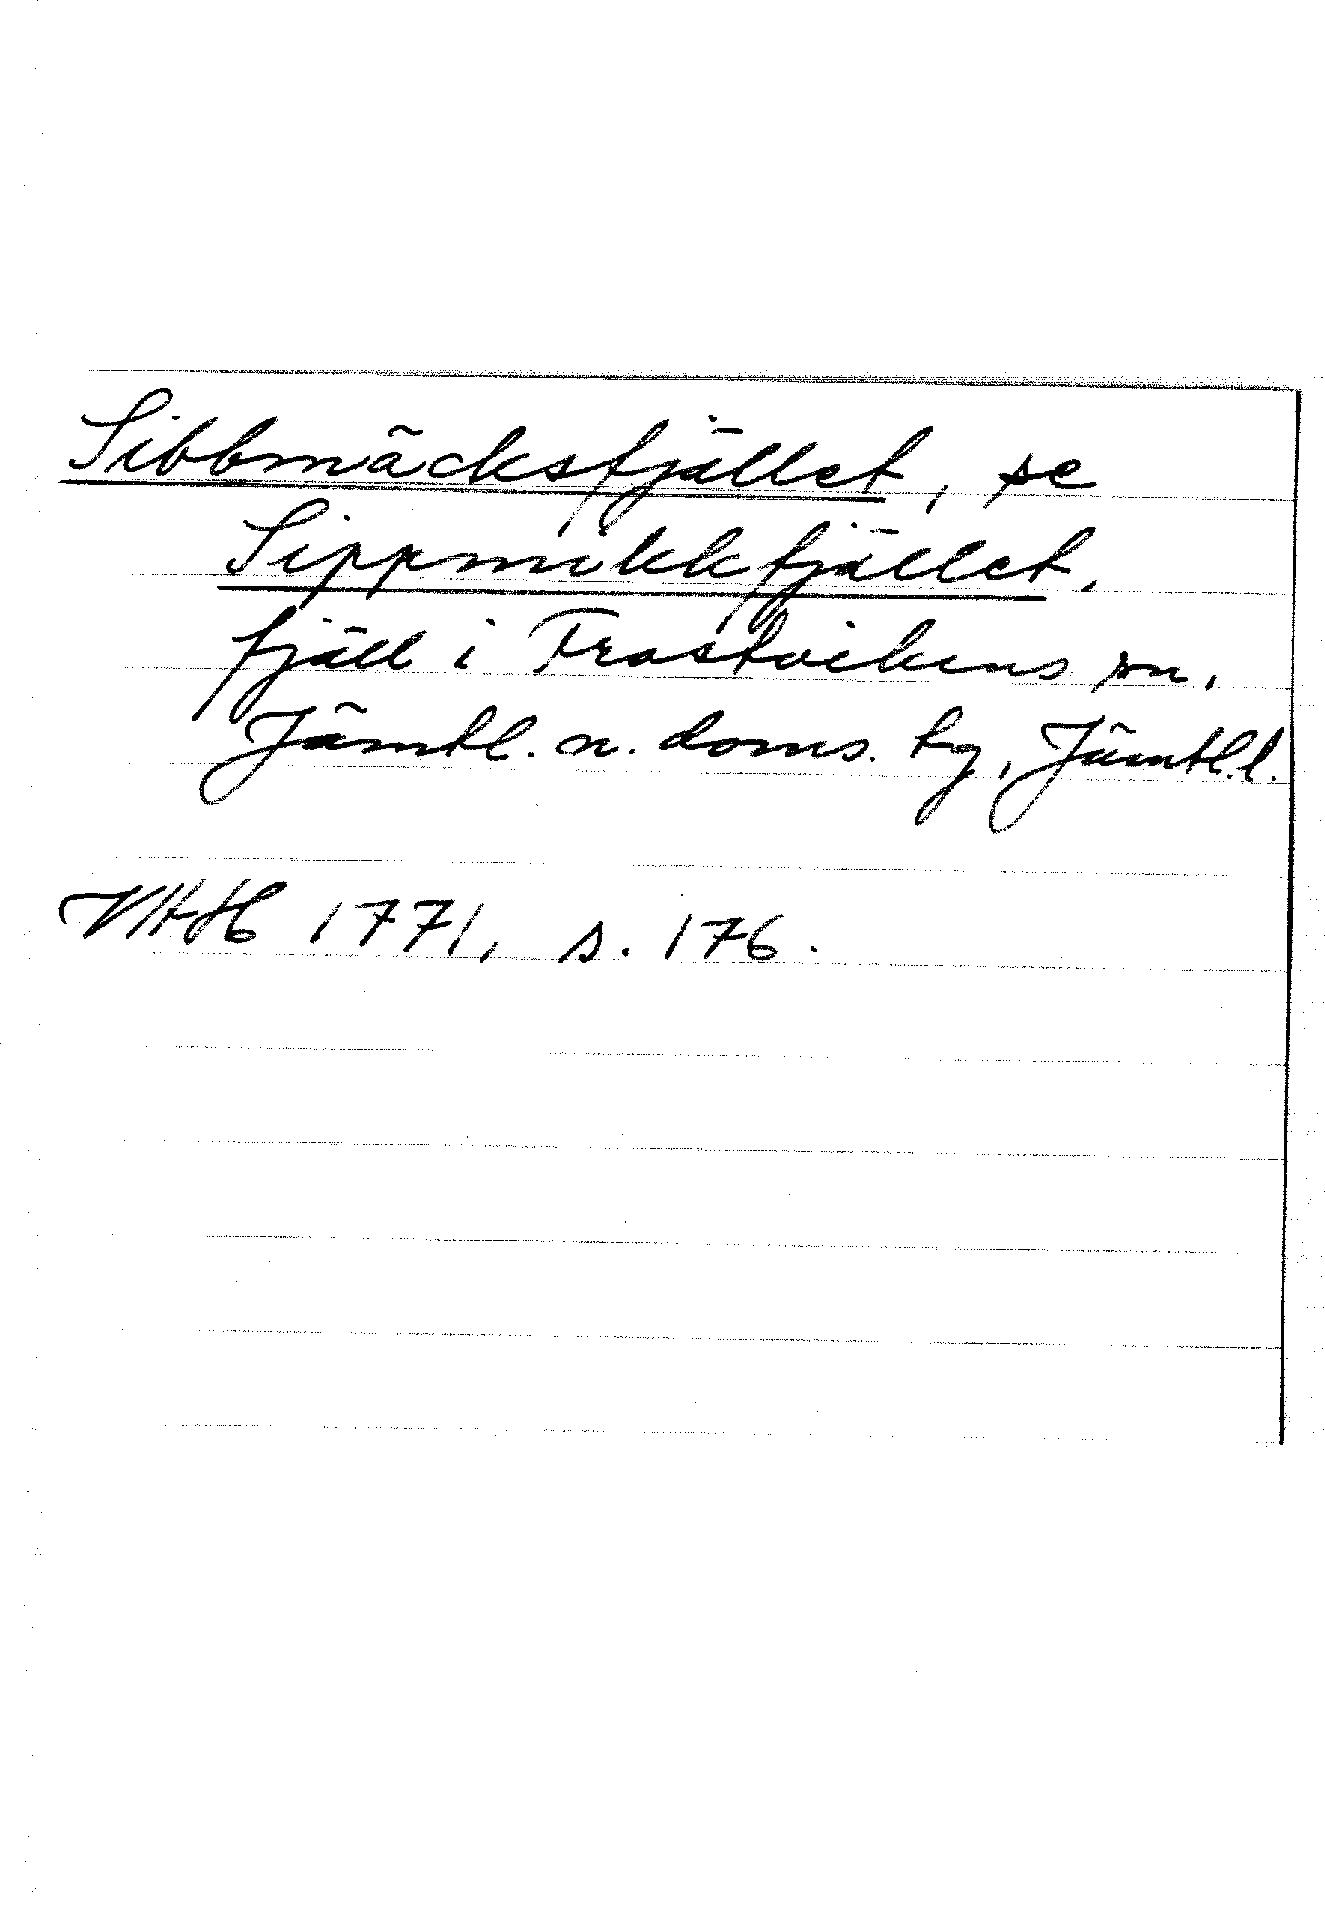 Sibbmäcksfjället, se
Sippmikkfjället,
fjäll i Frostvikens sn,
Jämtl. n. doms. tg, Jämtl.l.
VHAH 1771, s. 176.